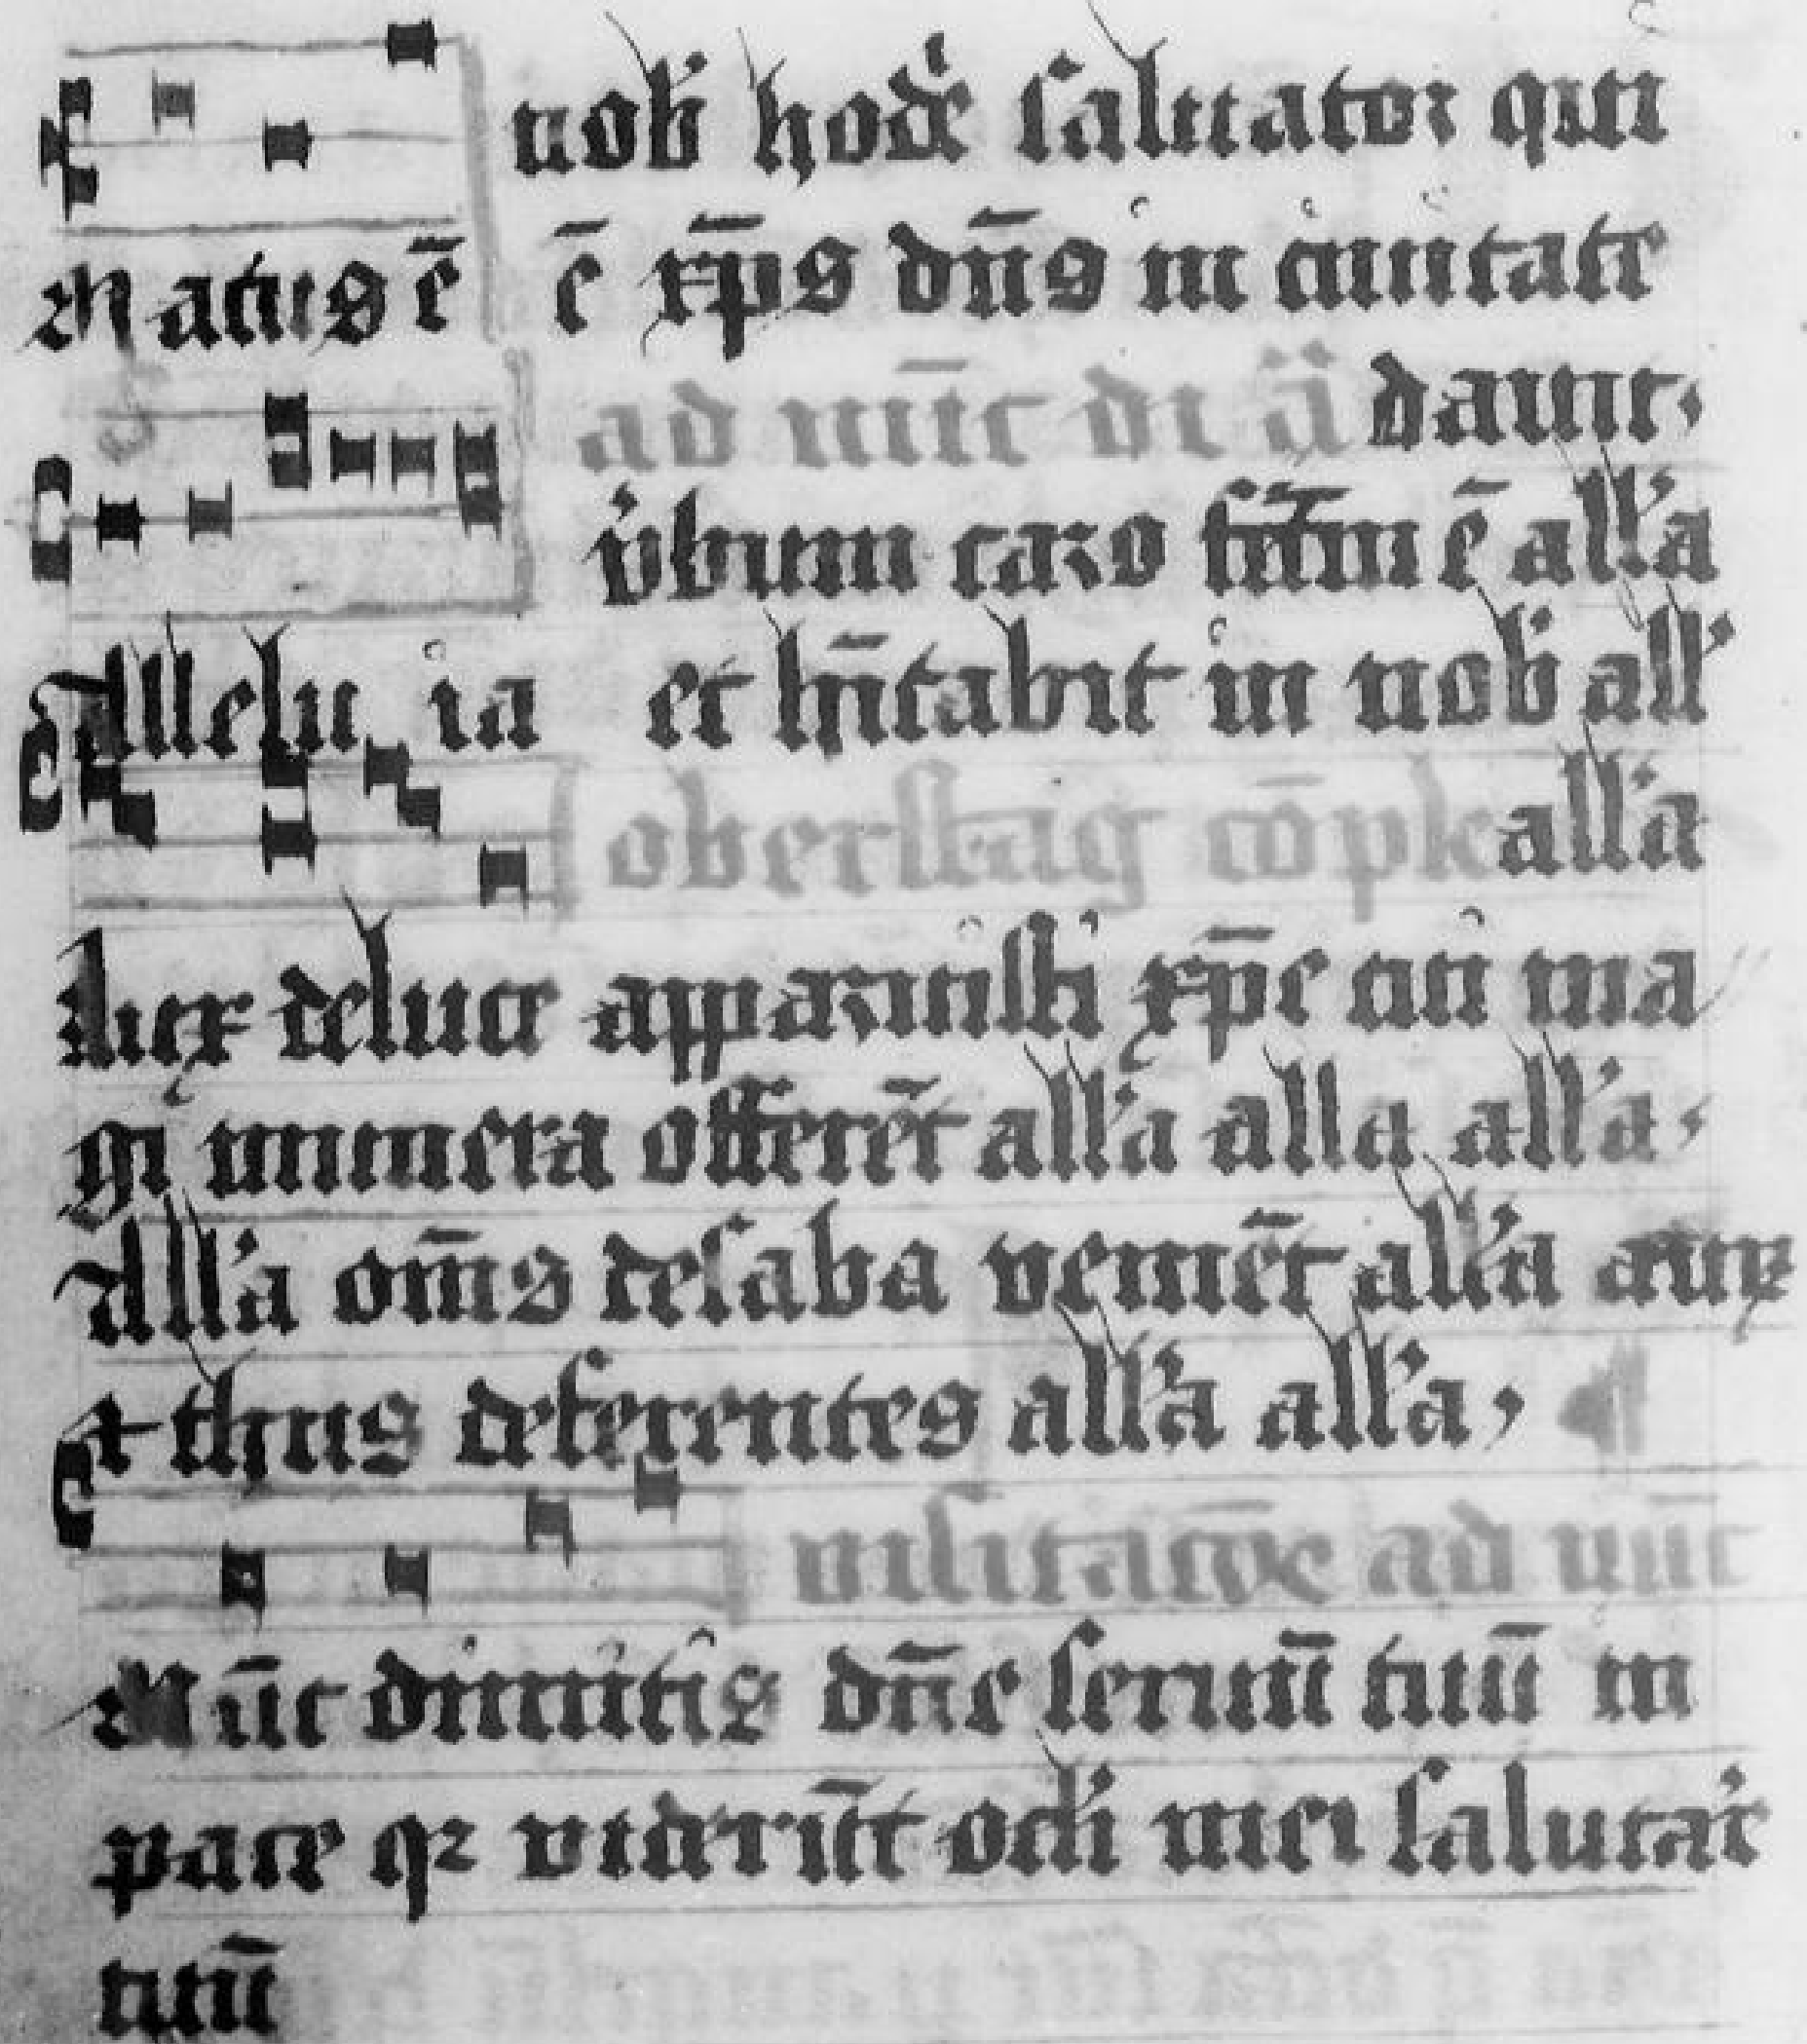 nob' hod'e saluator qui
Natus ē ē xp̄s dn̄s in ciuitate
ad nūc di ā dauit,
v'bum caro fc̄m ē all'a
Allelu ia et hītabit in nob' all'
oberstag cōple all'a
lux de luce apparuisti xp̄e cui ma
gi munera offerēt all'a alla all'a,
All'a om̄s de saba veniēt all'a aurꝫ
⁊ thus deferentes all'a all'a, ¶
visitatōe ad nūc
Nūc dimittis dn̄e seruū tuū in
pace qꝛ viderūt ocl'i mei salutar'e
tuū